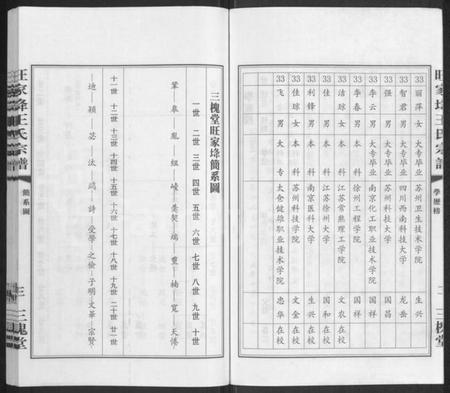 旺家埄王氏宗譜
學歷榜
二
三槐堂
33 麗萍 女 大专毕业 苏州卫生技术学院 生兴
33 智君 男 大专毕业 四川西南科技大学 龙岳
33 强 男 大专毕业 苏州科技大学 国昌
33 李云 男 大专毕业 南京化工职业技术学院 国祥
33 李春 男 本科 徐州工程学院 国祥
33 洁琼 女 本科 江苏常熟理工学院 文农 在校
33 佳 男 本科 江苏徐州大学 国和 在校
33 利锋 男 本科 南京医科大学 生兴 在校
33 佳琼 女 本科 苏州科技学院 文金 在校
33 飞 男 大专 太仓健雄职业技术学院 忠华 在校
三槐堂旺家埄簡系圖
一世 二世 三世 四世 五世 六世 七世 八世 九世 十世
鞏—皋—胤—組—崚—美契—端—重—楠—寬—天倦
十一世 十二世 十三世 十四世 十五世 十六世 十七世 十八世 十九世 二十世 廿一世
—迪—穎—苾—汰—鴻—詩—受學—之倫—子明—文華—宗賢
旺家埄王氏宗譜
簡系圖
三
三槐堂